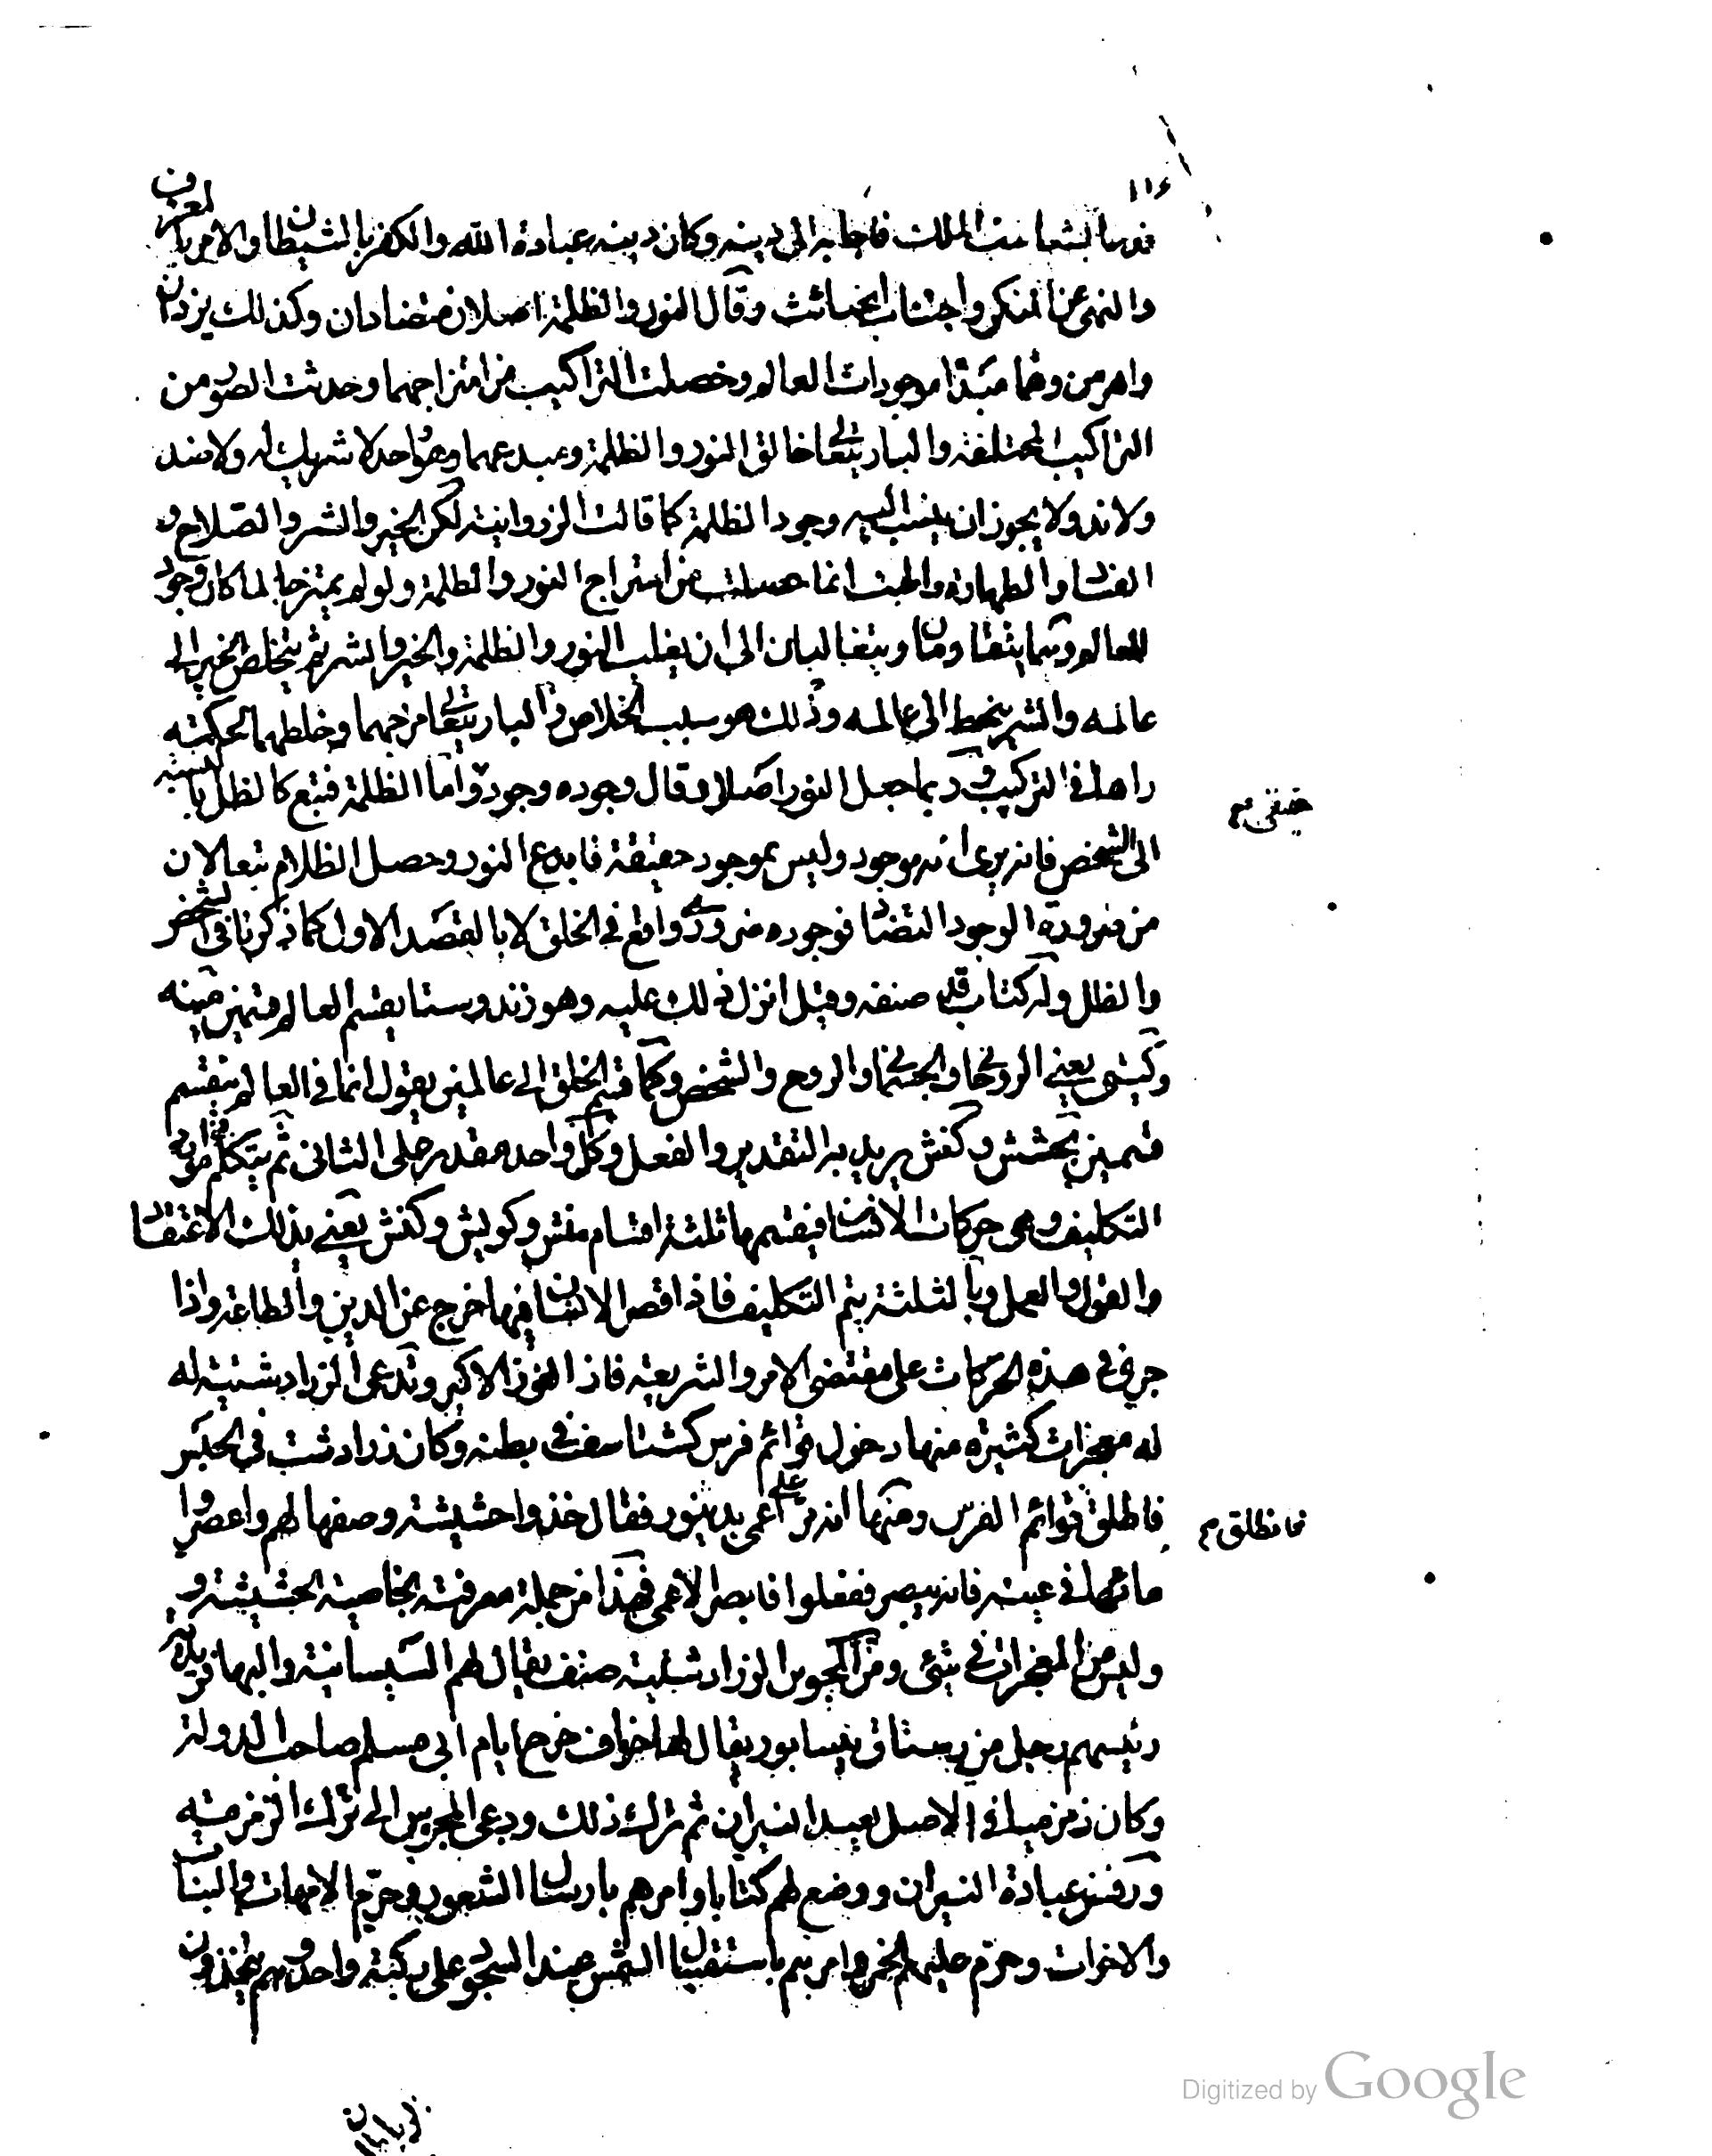 ١١٤
فدعا كشتاسف الملك فاجابه الى دينه وكان دينه عبادة الله والكفر بالشيطان والامر بالمعروف
والنهى عن المنكر واجتناب الخبائث وقال النور والظلمة اصلان متضادان وكذلك يزدان
واهرمن وهما مبدأ موجودات العالم وحصلت التراكيب من امتزاجهما وحدثت الصور من
التراكيب المختلفة والبارى تعالى خالق النور والظلمة ومبدعهما وهو واحد لا شريك له ولا ضد
ولا ند ولا يجوز ان ينسب اليه وجود الظلمة كما قالت الزروانية لكن الخير والشر والصلاح و
الفساد والطهارة والخبث انما حصلت من امتزاج النور والظلمة ولو لم يمتزجا لما كان وجود
للعالم وهما يتقاومان ويتغالبان الى ان يغلب النور والظلمة والخير والشر ثم يتخلص الخير الى
عالمه والشر ينحط الى عالمه وذلك هو سبب الخلاص والبارى تعالى مزجهما وخلطهما لحكمته
راها فى التركيب وربما جعل النور اصلا وقال وجوده وجود واما الظلمة فتبع كالظل بالنسبة
الى الشخص فانه يرى انه موجود وليس بموجود حقيقة فابدع النور وحصل الظلام تبعا لان
من ضرورة الوجود التضاد فوجوده ضرورى واقع فى الخلق لا بالقصد الاول كما ذكرنا فى الشخص
والظل وله كتاب قد صنفه وقيل انزل ذلك عليه وهو زندوستا يقسم العالم قسمين مينه
وكيتى يعنى الروحانى والجسمانى والروح والشخص وكما قسم الخلق الى عالمين يقول انما فى العالم ينقسم
قسمين بخشش وكنش يريد به التقدير والفعل وكل واحد مقدر على الثانى ثم يتكلم فى موارد
التكليف وهى حركات الانسان فيقسمها ثلثة اقسام منش وكويش وكنش يعنى بذلك الاعتقاد
والقول والعمل وبالثلثة يتم التكليف فاذا قصر الانسان فيها خرج عن الدين والطاعة واذا
جرى فى هذه الحركات على مقتضى الامر والشريعة فاز الفوز الاكبر وتدعى الزرادشتية له
له معجزات كثيرة منها دخول قوائم فرس كشتاسف فى بطنه وكان زرادشت فى الحبس
فاطلق قوائم الفرس ومنها انه مر على اعمى بدينور فقال خذوا حشيشة وصفها لهم واعصروا
ماءها فى عينه فانه يبصر ففعلوا فابصر الاعمى فهذا من جملة معرفته بخاصية الحشيشة و
وليس من المعجزات فى شئ ومن المجوس الزرادشتية صنف يقال لهم السيسانية والبهافريدية
رئيسهم رجل من رستاق نيسابور يقال لها خواف خرج ايام ابى مسلم صاحب الدولة
وكان زمزميا فى الاصل يعبد النيران ثم ترك ذلك ودعى المجوس الى ترك الزمزمية
ورفض عبادة النيران ووضع لهم كتابا وامرهم بارسال الشعور وحرم الامهات والبنات
والاخوات وحرم عليهم الخمر وامرهم باستقبال الشمس عند السجود على ركبة واحدة وهم يتخذون
فانطلق م